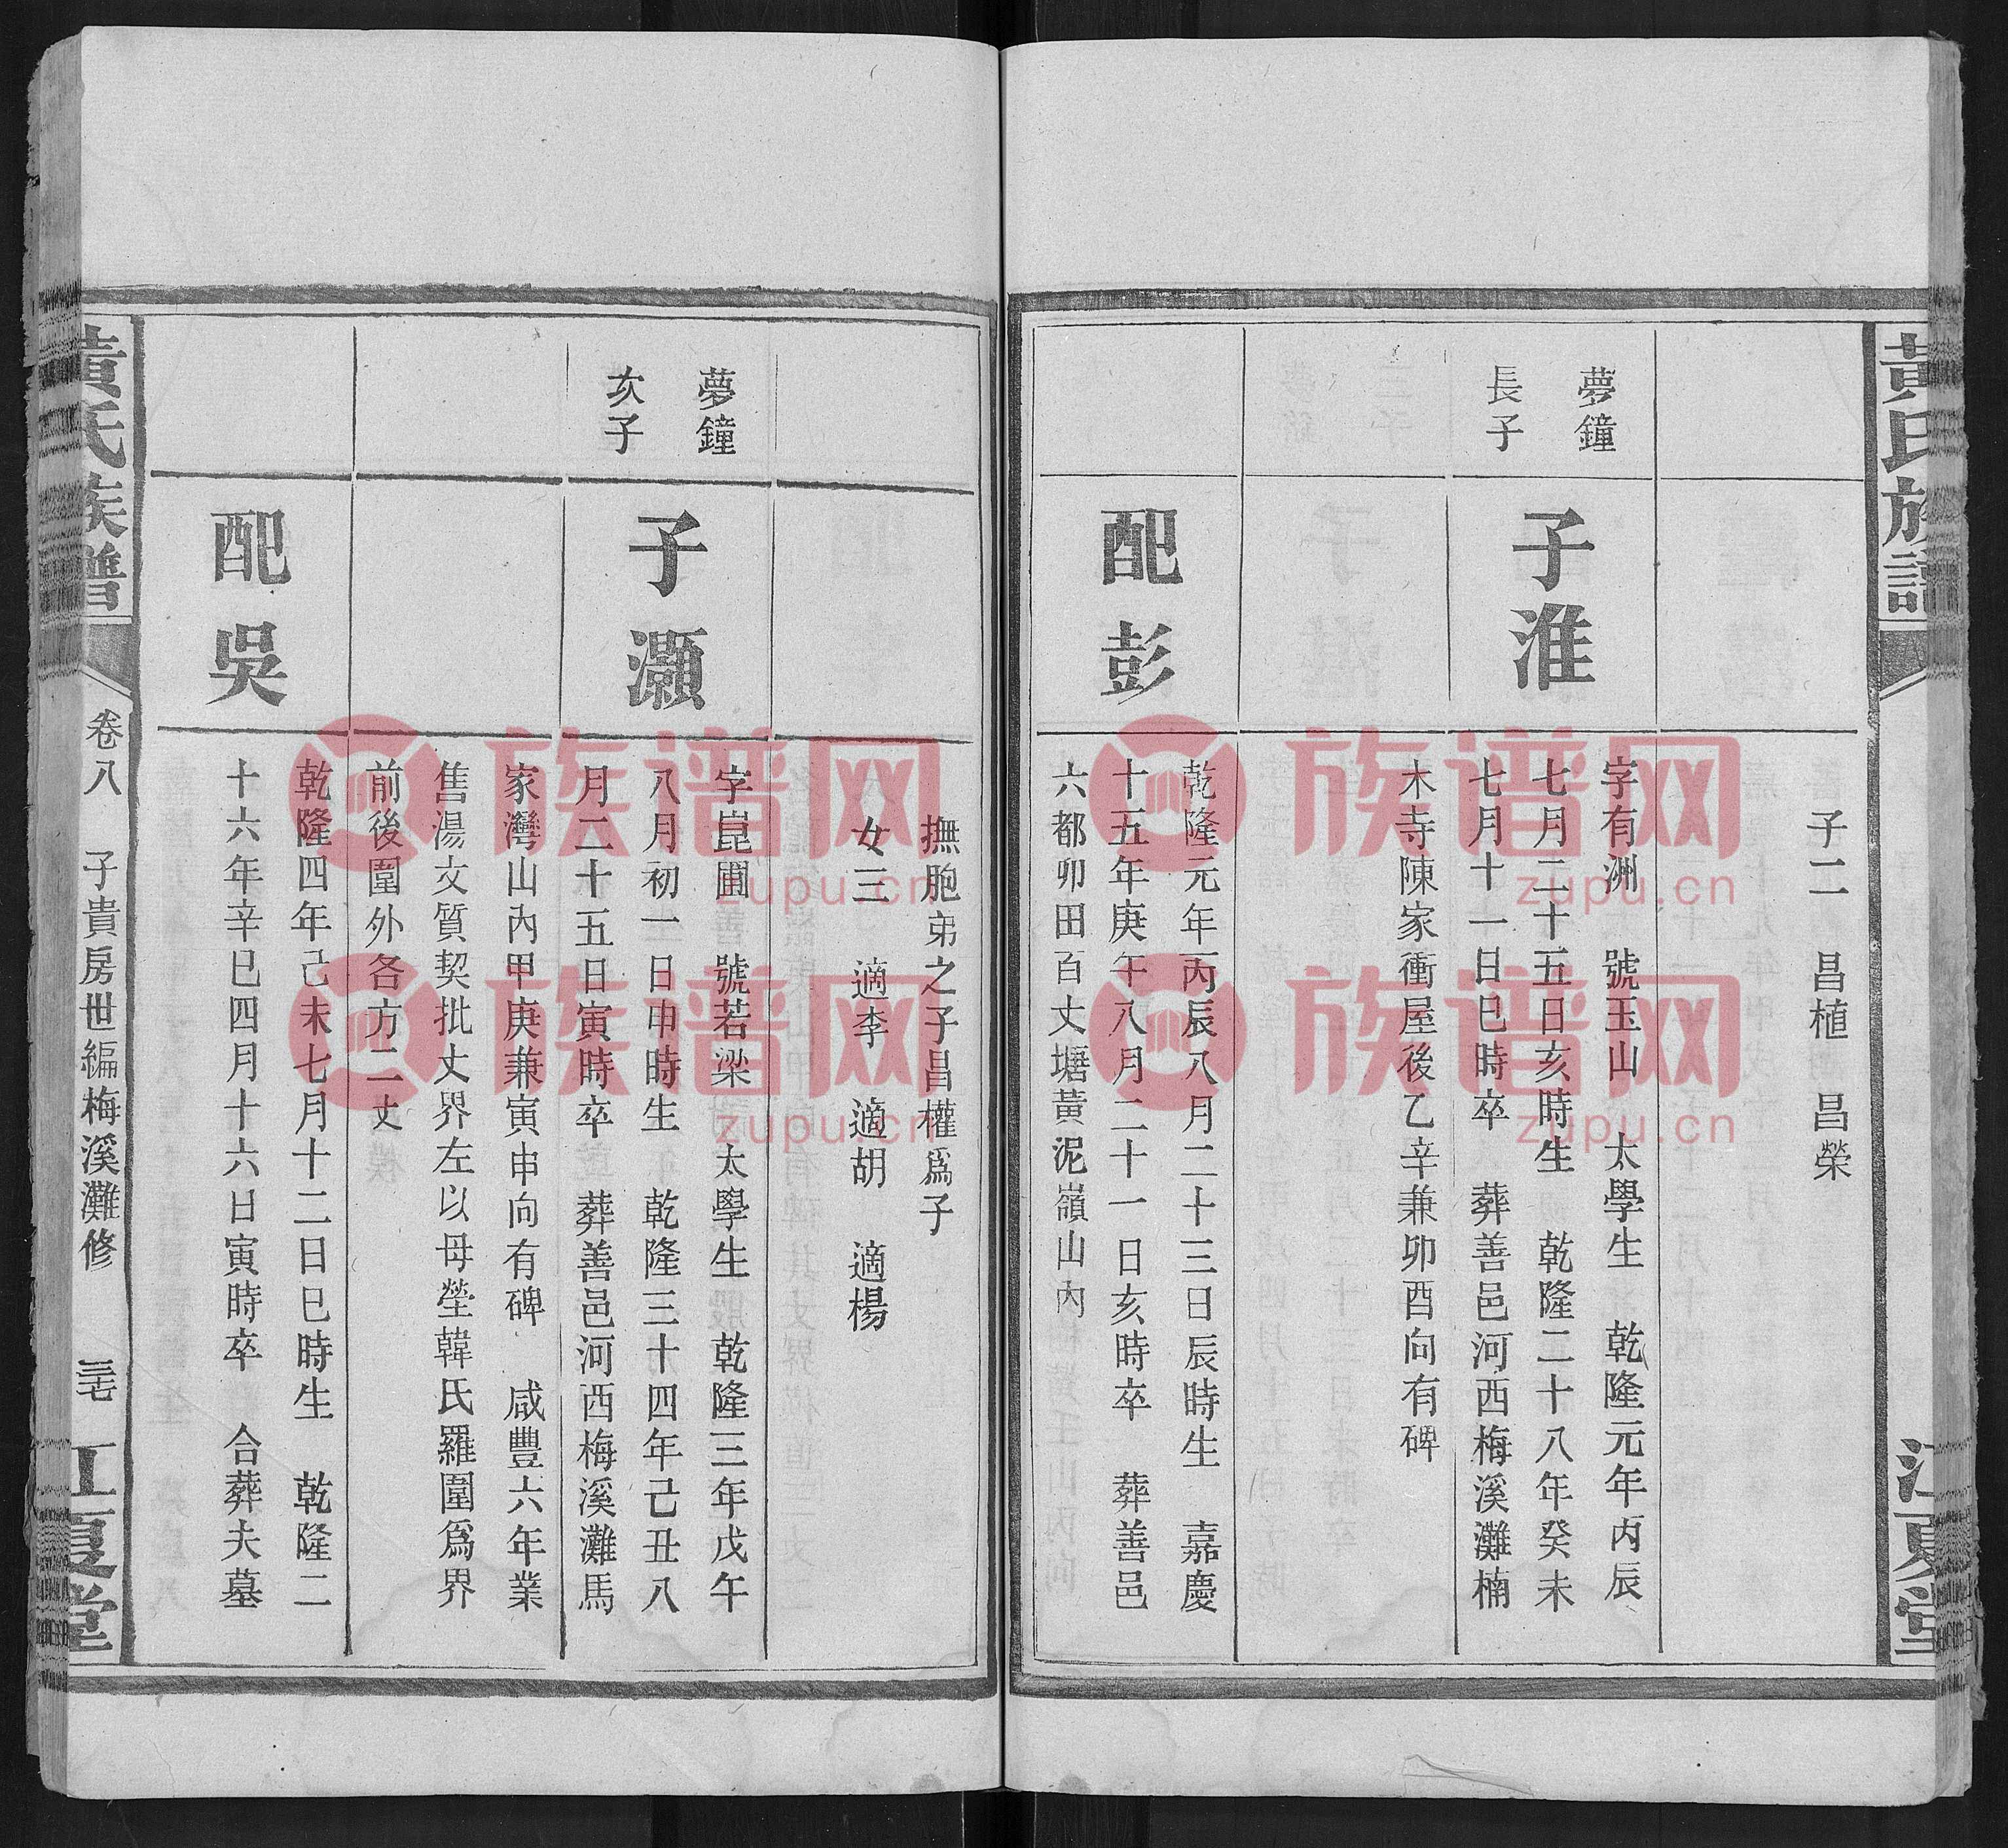 黃氏族譜
江夏堂
子二　昌植　昌榮
夢鐘
長子
子淮
字有洲　號玉山　太學生　乾隆元年丙辰
七月二十五日亥時生　乾隆二十八年癸未
七月十一日巳時卒　葬善邑河西梅溪灘楠
木寺陳家衝屋後乙辛兼卯酉向有碑
配彭
乾隆元年丙辰八月二十三日辰時生　嘉慶
十五年庚午八月二十一日亥時卒　葬善邑
六都卯田百丈塘黃泥嶺山內
撫胞弟之子昌權爲子
女三　適李　適胡　適楊
夢鐘
次子
子灝
字崑圃　號若梁　太學生　乾隆三年戊午
八月初一日申時生　乾隆三十四年己丑八
月二十五日寅時卒　葬善邑河西梅溪灘馬
家灣山內甲庚兼寅申向有碑　咸豐六年業
售湯文質契批丈界左以母塋韓氏羅圍爲界
前後圍外各方二丈
配吳
乾隆四年己未七月十二日巳時生　乾隆二
十六年辛巳四月十六日寅時卒　合葬夫墓
黃氏族譜
卷八　子貴房世編梅溪灘修　三七
江夏堂
族谱网
zupu.cn
族谱网
zupu.cn
族谱网
zupu.cn
族谱网
zupu.cn